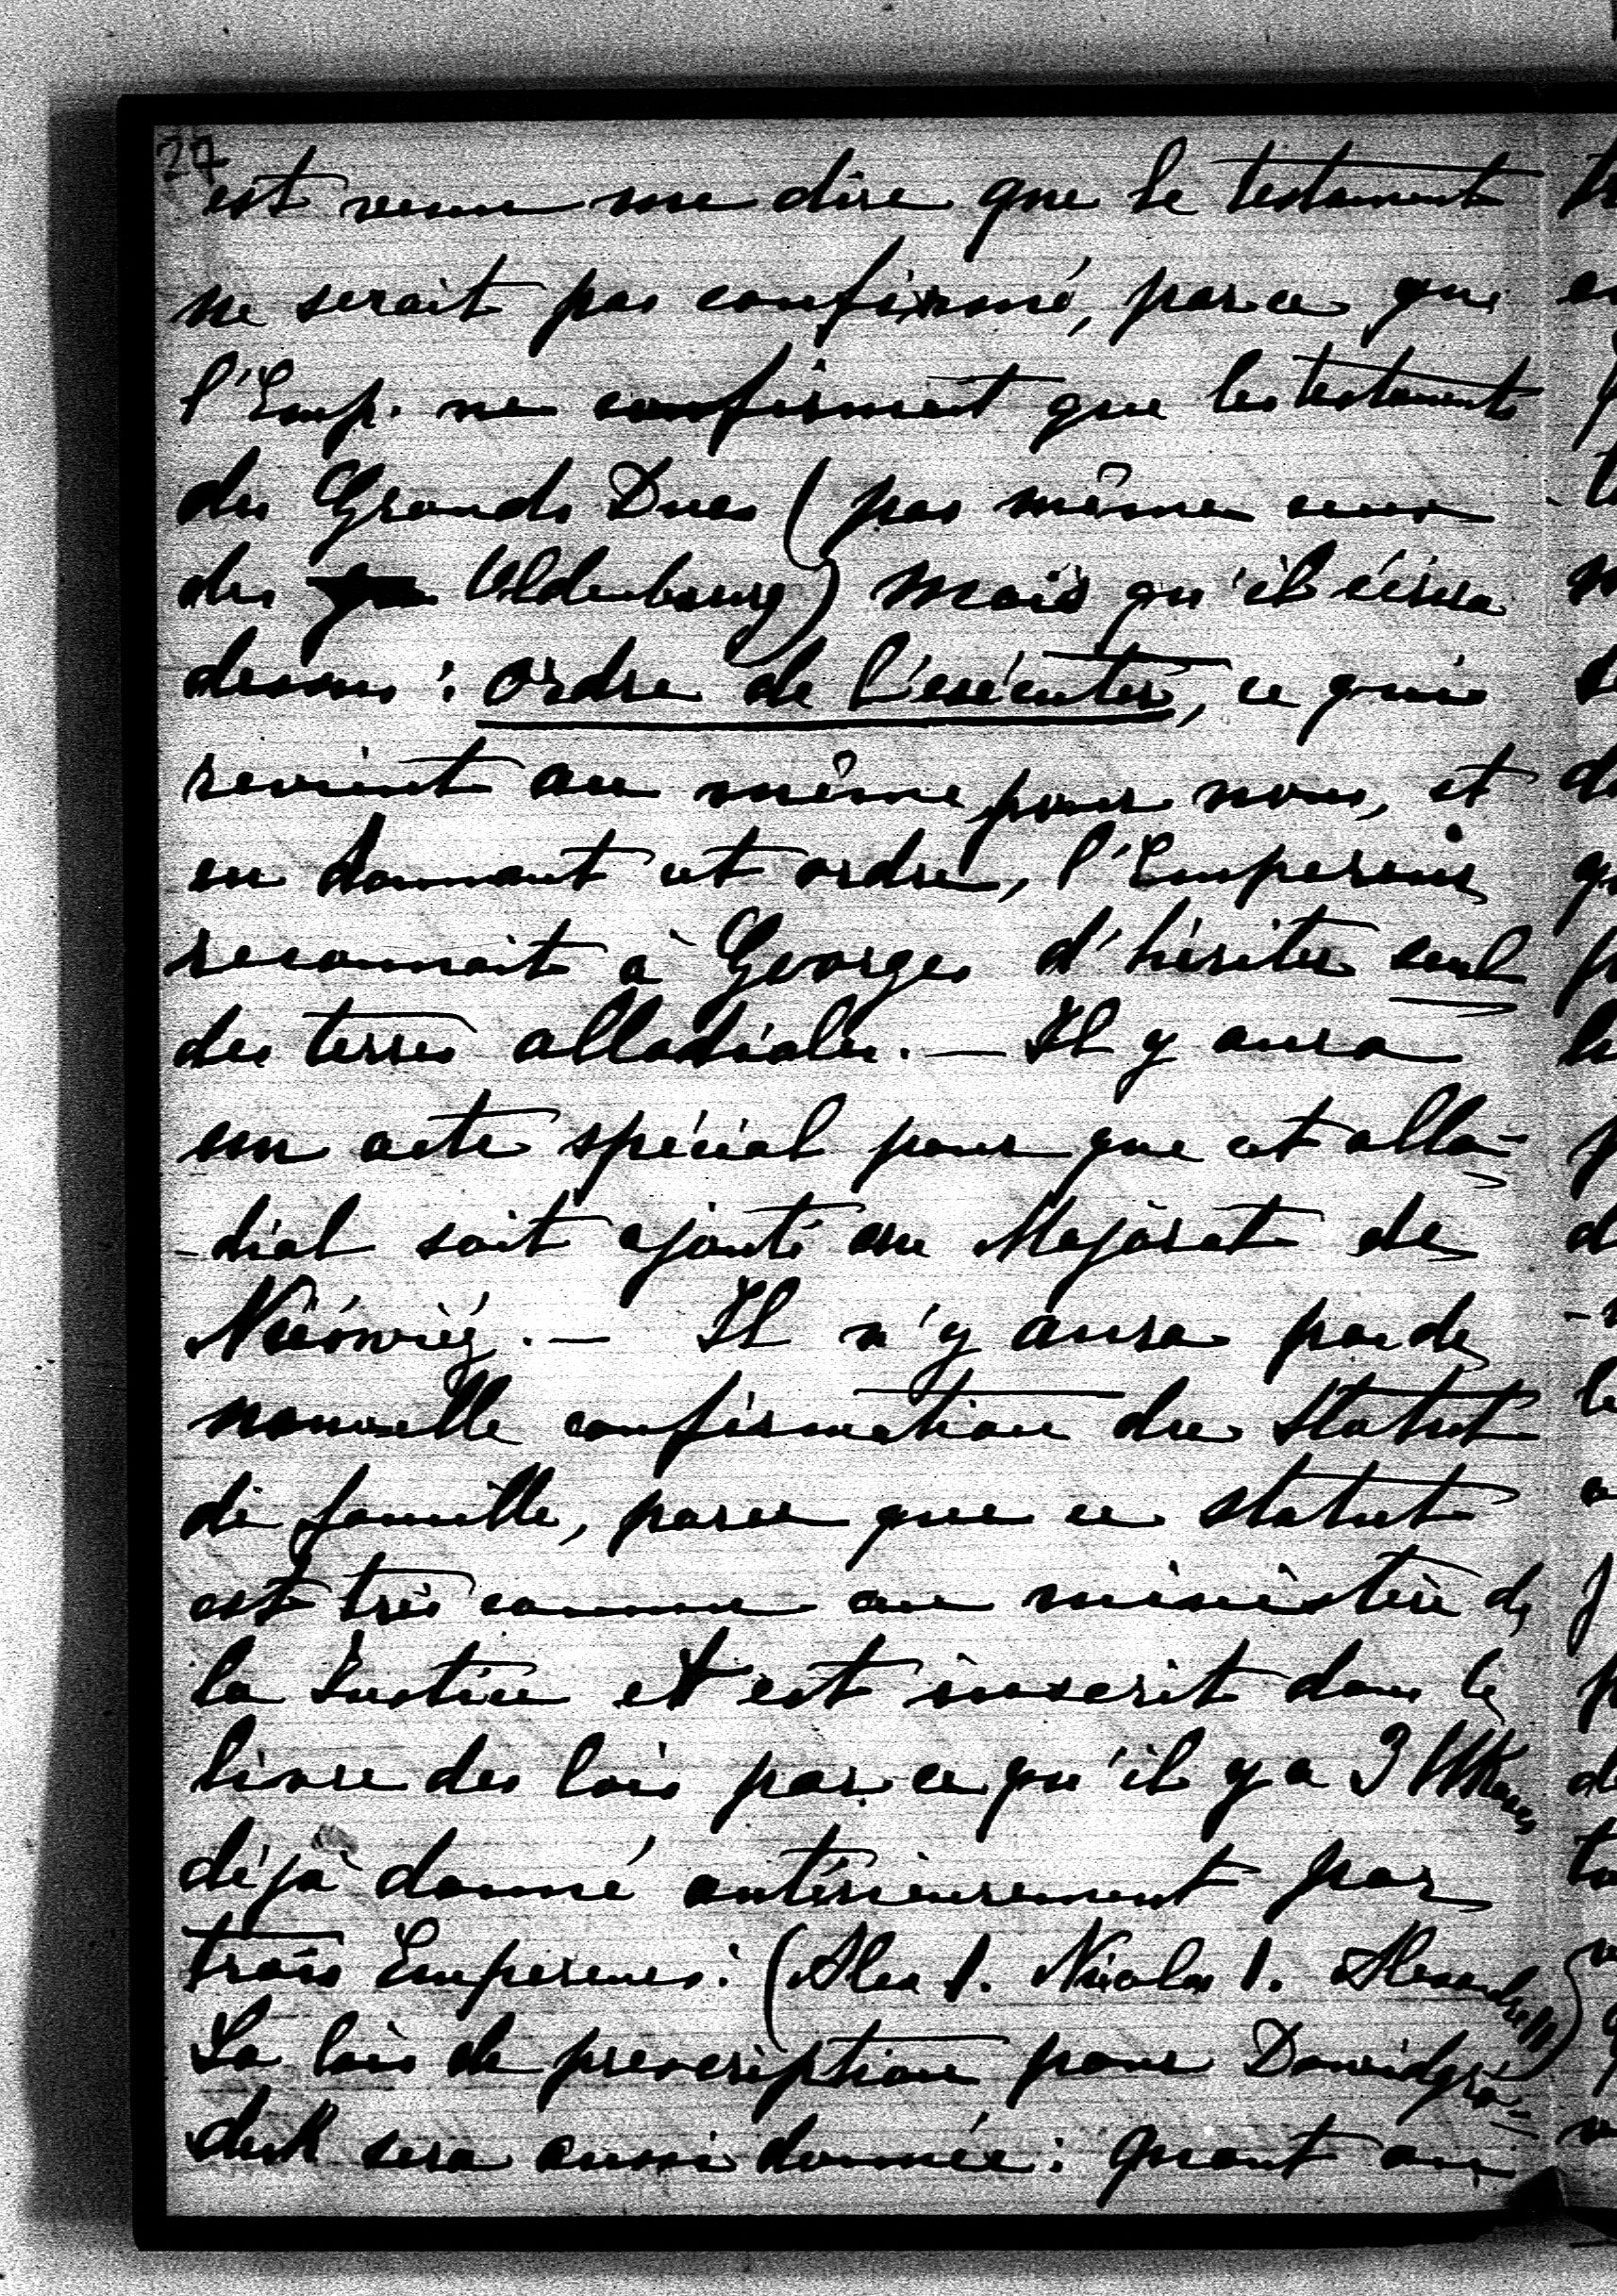 27
est venu me dire que le testament
ne serait pas confirmé, parce que
l'Emp. ne confirmait que les testaments
des Grands Ducs (pas même ceux
des Oldenbourg) mais qu'il écrira
dessus : ordre de l'exécuter, ce qui
revient au même pour nous, et
en donnant cet ordre, l'Empereur
reconnait à Georges d'hériter seul
des terres alladiales. — Il y aura
un acte spécial pour que cet alla-
-dial soit ajouté au Majorat de
Nieświéz. — Il n'y aura pas de
nouvelle confirmation du Statut
de famille, parce que ce statut
est très connu au ministère de
la Justice et est inscrit dans le
livre des lois parce qu'il y a 3 Ukases
déjà donné antérieurement par
trois Empereurs. (Alex I. Nicolas I. Alexandre II)
La lois de prescription pour Dawidgro-
dek sera aussi donnée : quant au